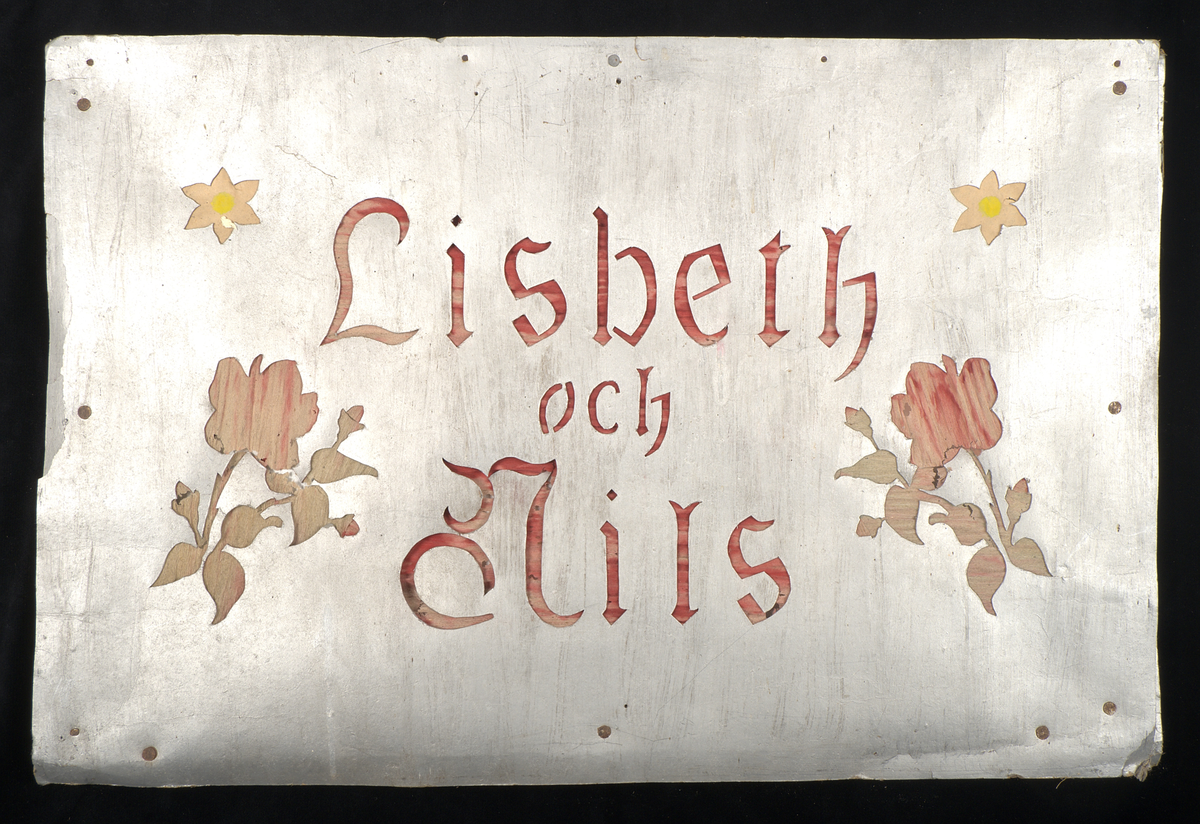 Lisbeth
och
Nils